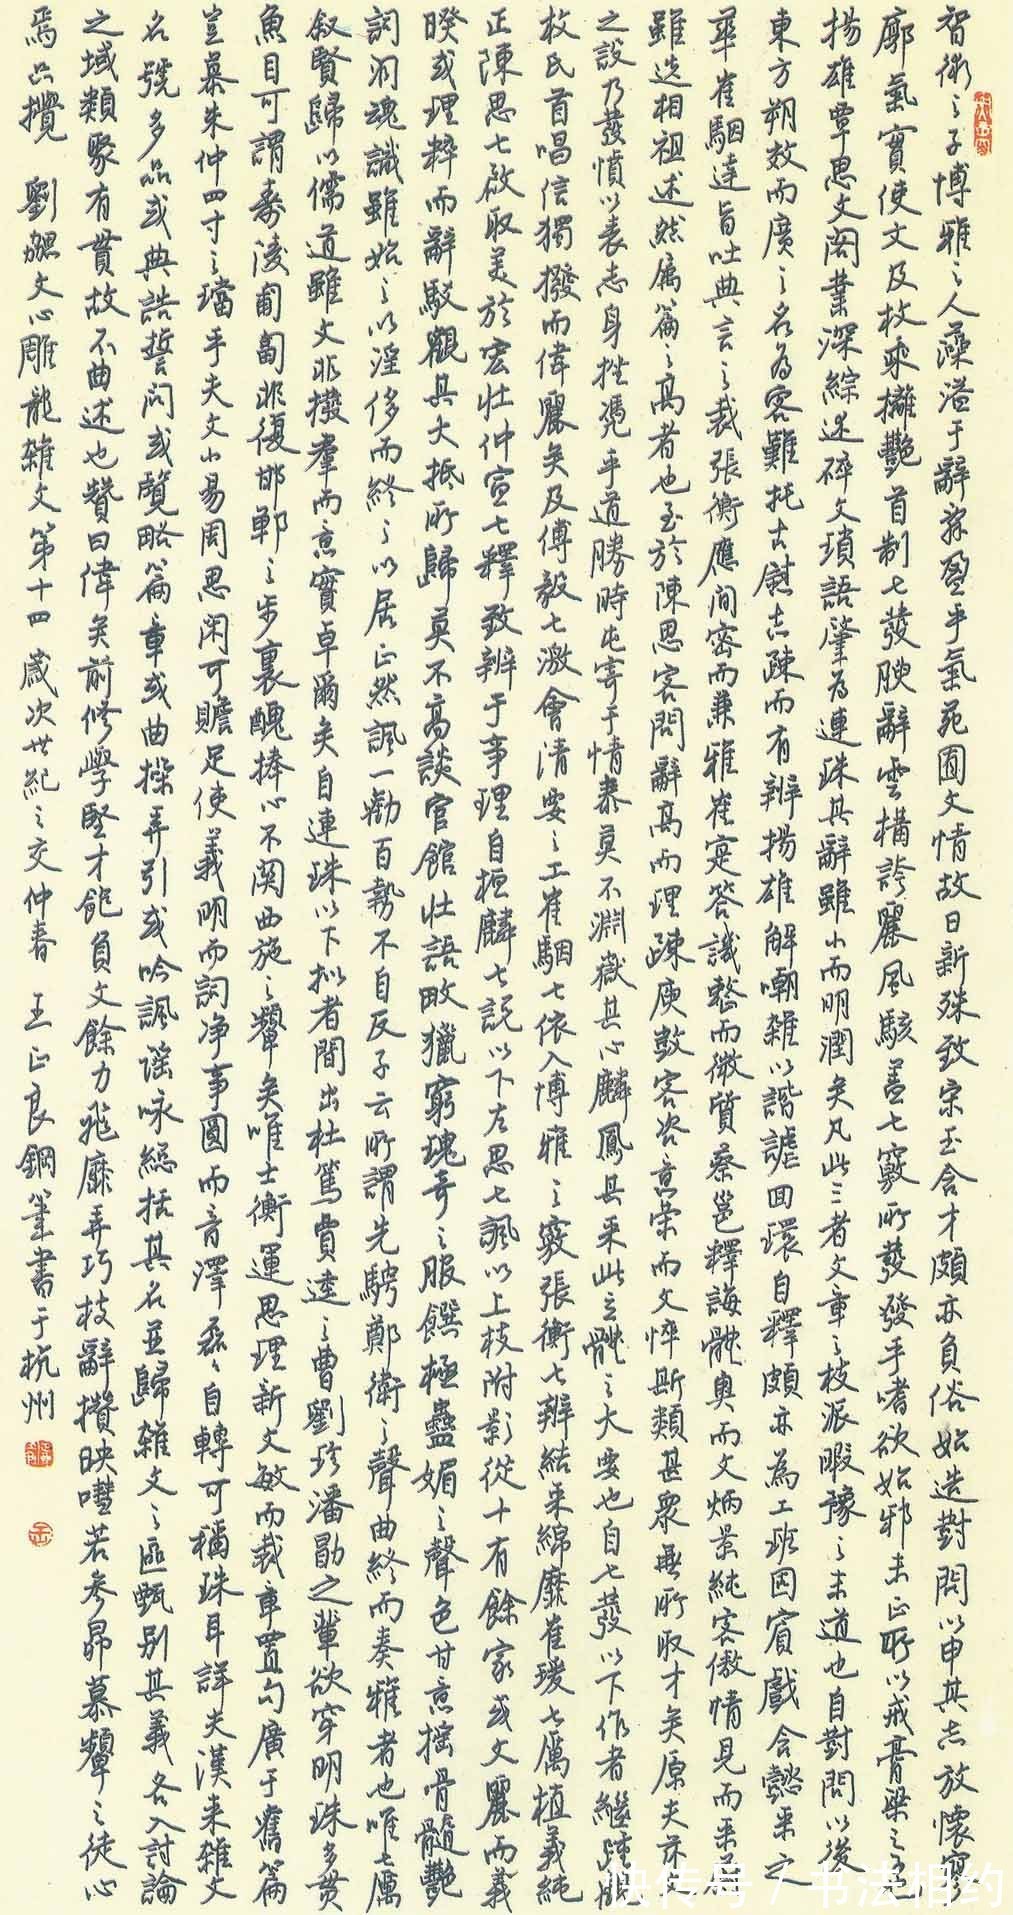 智術之子博雅之人藻溢于辭辭盈乎氣苑囿文情故日新殊致宋玉含才頗亦負俗始造對問以申其志放懷寥
廓氣實使文及枚乘攡艷首制七發腴辭雲構誇麗風駭蓋七竅所發發乎嗜欲始邪末正所以戒膏粱之子
揚雄覃思文閣業深綜述碎文瑣語肇為連珠其辭雖小而明潤矣凡此三者文章之枝派暇豫之末道也自對問以後
東方朔效而廣之名為客難托古慰志疎而有辨揚雄解嘲雜以諧謔回環自釋頗亦為工班固賓戲含懿采之
華崔駰達旨吐典言之裁張衡應間密而兼雅崔寔答譏整而微質蔡邕釋誨體奧而文炳景純客傲情見而采蔚
雖迭相祖述然屬篇之高者也至於陳思客問辭高而理疎庾敳客咨意榮而文悴斯類甚眾無所取才矣原夫茲文
之設乃發憤以表志身挫憑乎道勝時屯寄于情泰莫不淵嶽其心麟鳳其采此立體之大要也自七發以下作者繼踵觀
枚氏首唱信獨撥而偉麗矣及傅毅七激會清要之工崔駰七依入博雅之竅張衡七辨結采綿靡崔瑗七厲植義純
正陳思七啟取美於宏壯仲宣七釋致辨于事理自桓麟七說以下左思七諷以上枝附影從十有餘家或文麗而義
暌或理粹而辭駁觀其大抵所歸莫不高談宮館壯語畋獵窮瑰奇之服饌極蠱媚之聲色甘意搖骨髓艷
詞洞魂識雖始之以淫侈而終之以居正然諷一勸百勢不自反子云所謂先騁鄭衛之聲曲終而奏雅者也唯七厲
叙賢歸以儒道雖文非撥羣而意實卓爾矣自連珠以下拟者間出杜篤賈逵之曹劉珍潘勖之輩欲穿明珠多貫
魚目可謂壽陵匍匐非復邯鄲之步裏醜捧心不関西施之顰矣唯士衡運思理新文敏而裁章置句廣于舊篇
豈慕朱仲四寸之璫乎夫文小易周思閑可贍足使義明而詞净事圓而音澤磊磊自轉可稱珠耳詳夫漢来雜文
名號多品或典誥誓问或覽略篇章或曲操弄引或吟諷謡咏總括其名並歸雜文之區甄别其義各入討論
之域類聚有貫故不曲述也贊曰偉矣前修學堅才飽負文餘力飛靡弄巧枝辭攢映嘒若參昴慕顰之徒心
焉只攪 劉勰文心雕龍雜文第十四 歲次世紀之交仲春 王正良鋼筆書于杭州
快传号 / 书法相约